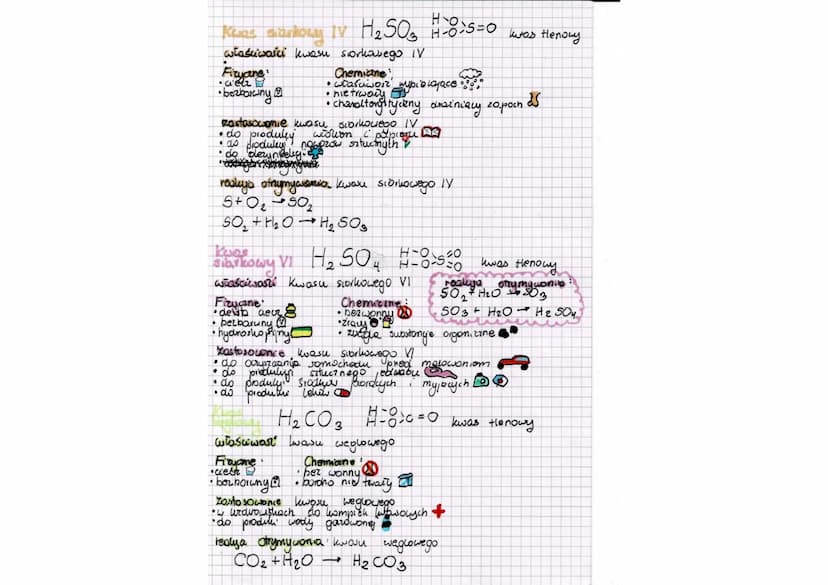 Kwas siarkowy IV H₂SO₃ H-O H-O >S=O kwas tlenowy
właściwości kwasu siarkowego IV
Fizyczne: Chemiczne:
• ciecz • właściwość wybielające
• bezbarwny • nietrwały
• charakterystyczny drażniący zapach
zastosowanie kwasu siarkowego IV
• do produkcji włókien i papieru
• do produkcji nawozów sztucznych
• do dezynfekcji
reakcja otrzymywania kwasu siarkowego IV
S + O₂ → SO₂
SO₂ + H₂O → H₂SO₃
Kwas siarkowy VI H₂SO₄ H-O H-O >S =O =O kwas tlenowy
właściwości kwasu siarkowego VI
reakcja otrzymywania:
SO₂ + H₂O → SO₃
SO₃ + H₂O → H₂SO₄
Fizyczne: Chemiczne:
• oleista ciecz • bezwonny
• bezbarwny • żrący
• hydroskopijny • zwęgla substancje organiczne
zastosowanie kwasu siarkowego VI
• do oczyszczania samochodu przed malowaniem
• do produkcji sztucznego jedwabiu
• do produkcji środków piorących i myjących
• do produktki leków
Kwas węglowy H₂CO₃ H-O H-O >C=O kwas tlenowy
właściwość kwasu węglowego
Fizyczne: Chemiczne:
• ciecz • bez wonny
• bezbarwny • bardzo nie trwały
zastosowanie kwasu węglowego
• w uzdrowiskach do kąpieli kwasowych
• do produkcji wody gazowanej
reakcja otrzymywania kwasu węglowego
CO₂ + H₂O → H₂CO₃